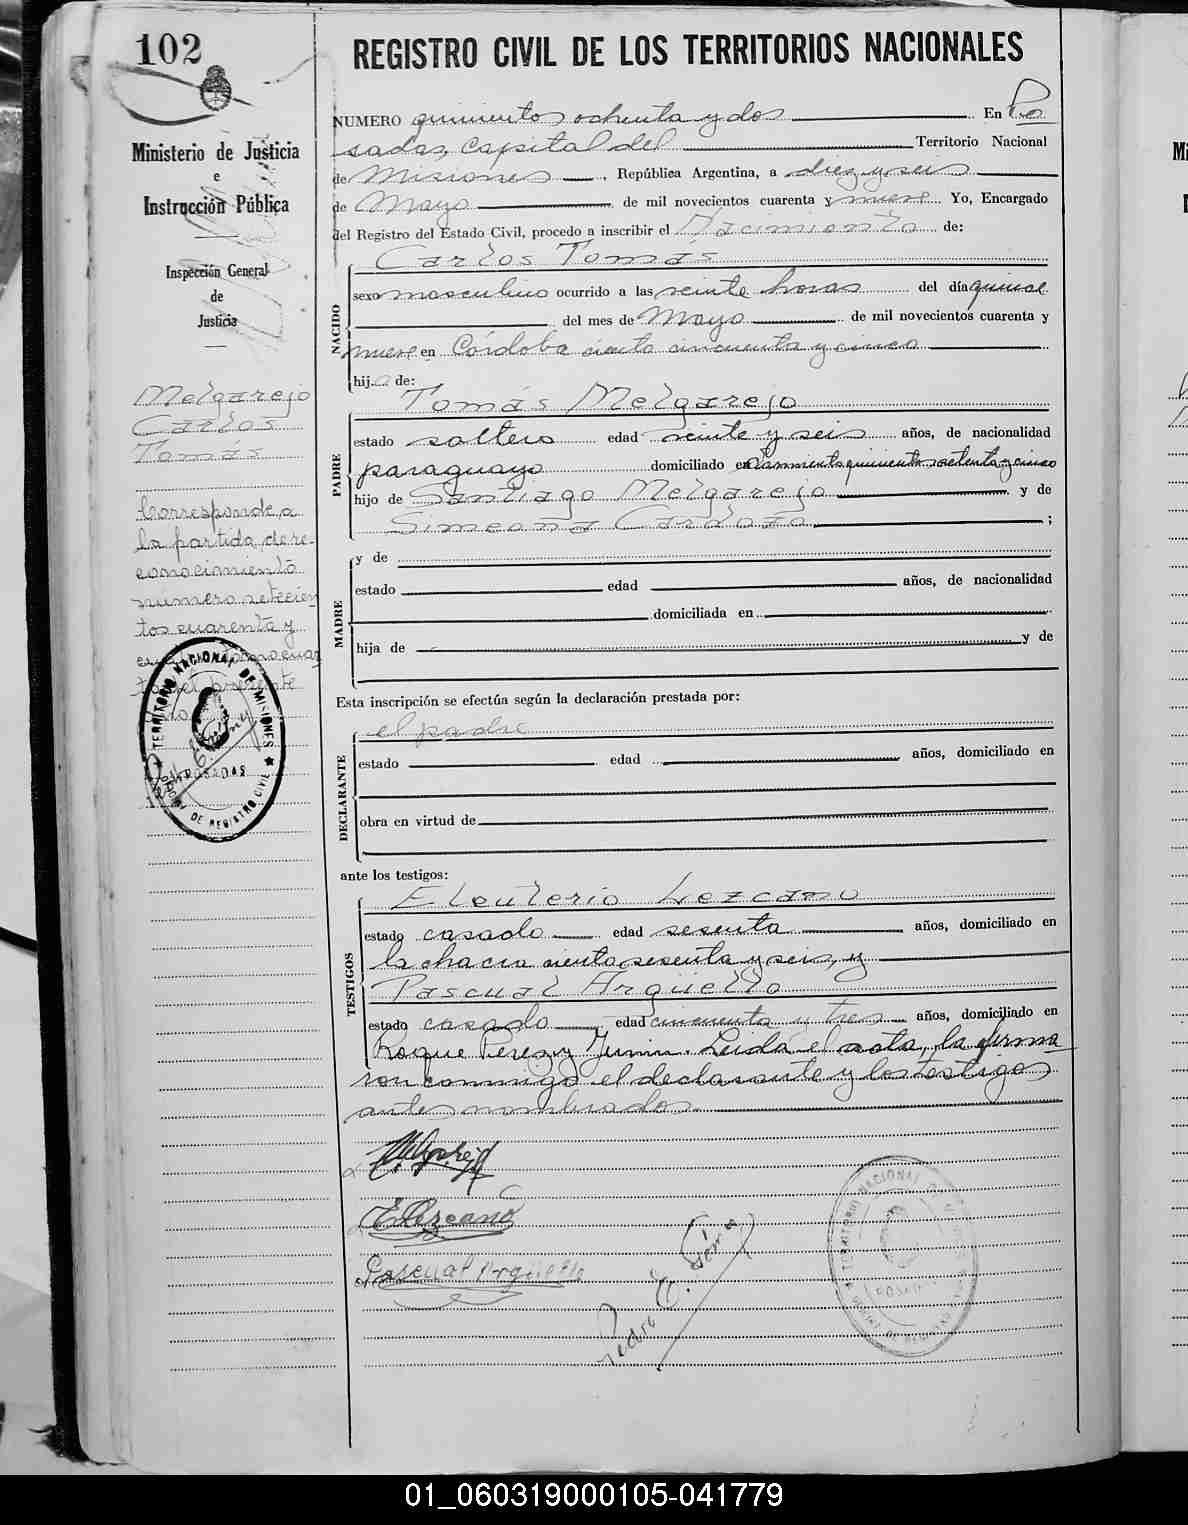 102
Ministerio de Justicia
e
Instrucción Pública
Inspección General
de
Justicia
Melgarejo
Carlos
Tomás
Corresponde a
la partida de re-
conocimiento
número setecien
tos cuarenta y
REGISTRO CIVIL DE LOS TERRITORIOS NACIONALES
NUMERO quinientos ochenta y dos En Po
sadas, Capital del Territorio Nacional
de Misiones, República Argentina, a diez y seis
de Mayo de mil novecientos cuarenta y nueve Yo, Encargado
del Registro del Estado Civil, procedo a inscribir el Nacimiento de:
NACIDO
Carlos Tomás
sexo masculino ocurrido a las veinte horas del día quince
del mes de Mayo de mil novecientos cuarenta y
nueve en Córdoba ciento cincuenta y cinco
hijo de:
PADRE
Tomás Melgarejo
estado soltero edad veinte y seis años, de nacionalidad
paraguayo domiciliado en quinientos setenta y cinco
hijo de Santiago Melgarejo y de
Simeona Cardozo ;
MADRE
y de
estado edad años, de nacionalidad
domiciliada en
hija de y de
Esta inscripción se efectúa según la declaración prestada por:
DECLARANTE
el padre
estado edad años, domiciliado en
obra en virtud de
ante los testigos:
TESTIGOS
Eleuterio Lezcano
estado casado edad sesenta años, domiciliado en
la chacra ciento sesenta y seis, y
Pascual Argüello
estado casado edad cincuenta y tres años, domiciliado en
Roque Perez y Junin. Leida el acta, la firma
ron conmigo el declarante y los testigos
antes nombrados.
E Lezcano
Pascual Argüello
TERRITORIO NACIONAL DE MISIONES
POSADAS
OFICINA DE REGISTRO CIVIL
01_060319000105-041779